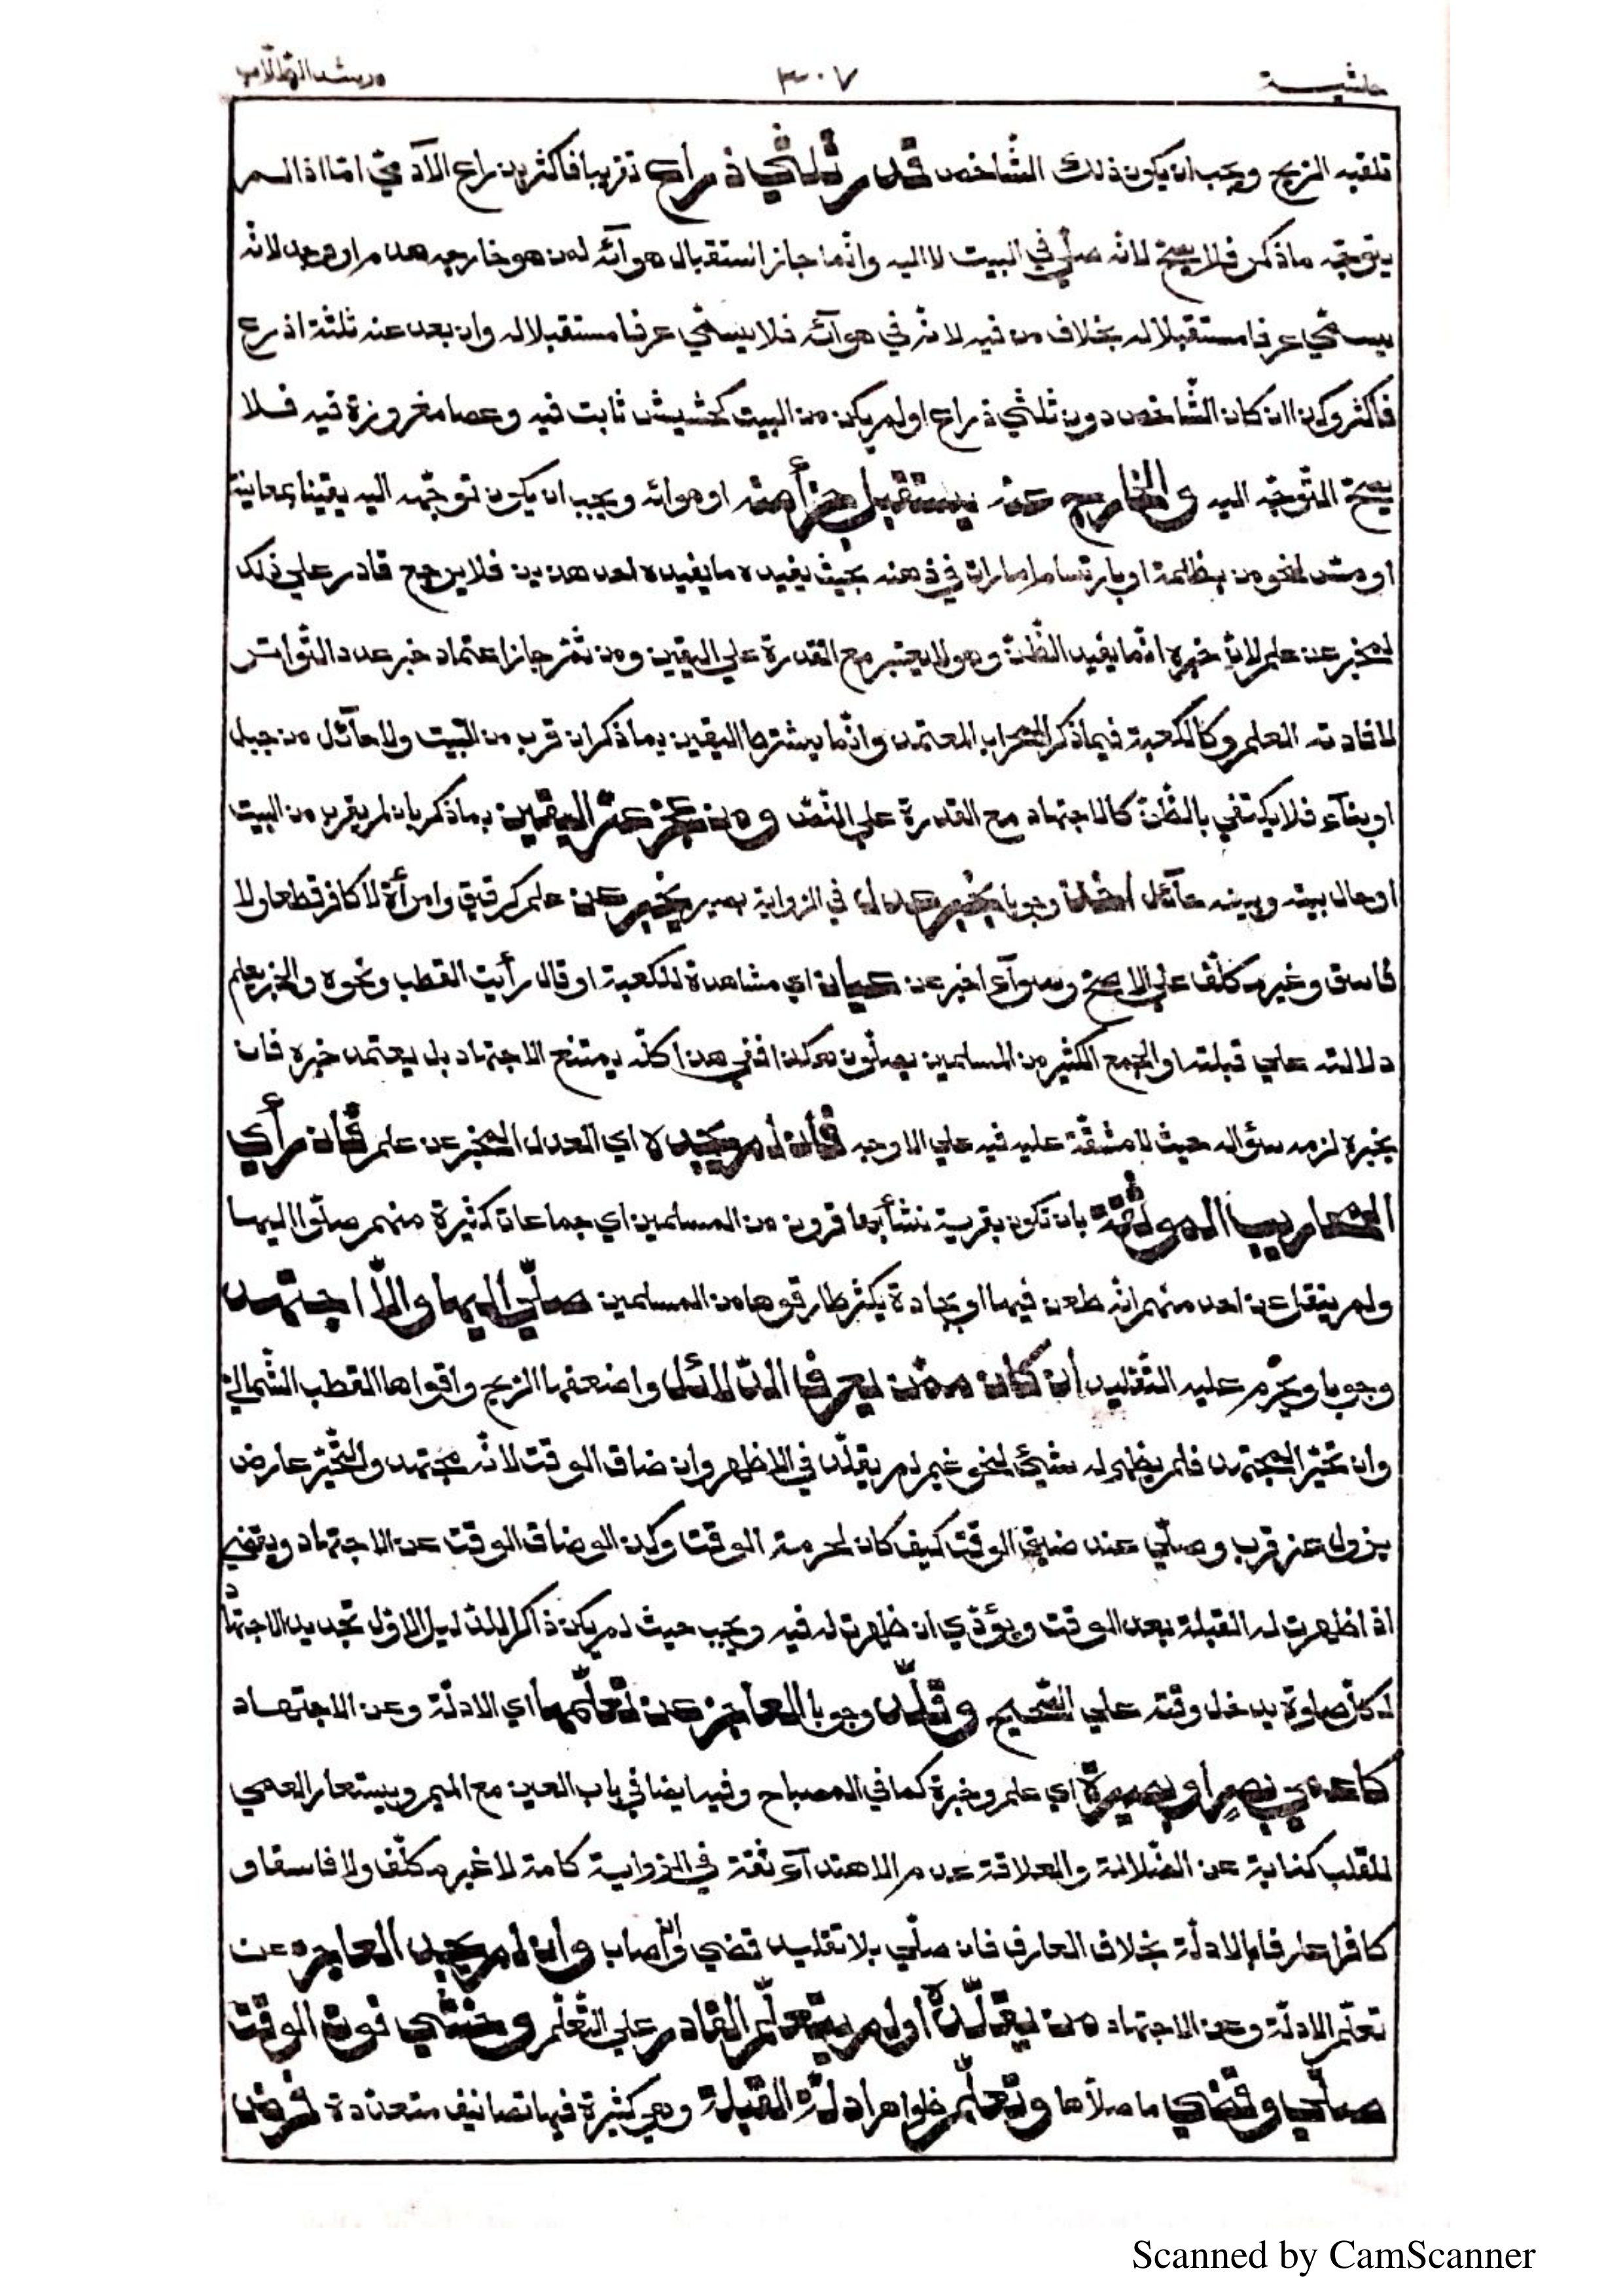 حاشيـــة ٣٠٧ مرشد الطلاب
تلقيه الريح ويجب ان يكون ذلك الشاخص قدر ثلثي ذراع تقريبا فاكثر بذراع الآدمي اما اذا لم
يتوجه ما ذكر فلا يصح لانه صلى في البيت لا اليه وانما جاز استقبال هوآئه لمن هو خارجه هدم او وجد لانه
يسمى عرفا مستقبلا له بخلاف من فيه لانه في هوآئه فلا يسمى عرفا مستقبلا له وان بعد عنه ثلثة اذرع
فاكثر وكذا ان كان الشاخص دون ثلثي ذراع او لم يكن من البيت كحشيش ثابت فيه وعصا مغروزة فيه فلا
يصح التوجه اليه والخارج عنه يستقبل جزأ منه او هوائه ويجب ان يكون توجهه اليه يقينا بمعاينة
او مس لنحو من بظلمة او بارتسام امارات في ذهنه بحيث يفيده ما يفيده احد هذين فلا يرجع قادر على ذلك
لمخبر عن علم لان خبره انما يفيد الظن وهو لا يعتبر مع القدرة على اليقين ومن ثم جاز اعتماد خبر عدد التواتر
لافادته العلم وكالكعبة فيما ذكر المحراب المعتمد وانما يشترط اليقين بما ذكر ان قرب من البيت ولا حآئل من جبل
او بنآء فلا يكتفي بالظن كالاجتهاد مع القدرة على النص ومن عجز عن اليقين بما ذكر بان لم يقرب من البيت
او حال بينه وبينه حآئل اخذ وجوبا بخبر عدل في الرواية بصير يخبر عن علم كرقيق وامرأة لا كافر قطعا ولا
فاسق وغير مكلف على الاصح وسوآء اخبر عن عيان اي مشاهدة للكعبة او قال رأيت القطب ونحوه والمخبر يعلم
دلالته على قبلته او الجمع الكثير من المسلمين يصلون هكذا ففي هذا كله يمتنع الاجتهاد بل يعتمد خبره فان
يخبره لزمه سؤاله حيث لا مشقة عليه فيه على الاوجه فان لم يجده اي العدل المخبر عن علم فان رأى
المحاريب الموثقة بان تكون بقرية نشأ بها قرون من المسلمين اي جماعات كثيرة منهم صلوا اليها
ولم ينقل عن احد منهم انه طعن فيها او بجادة يكثر طارقوها من المسلمين صلى اليها والا اجتهد
وجوبا ويحرم عليه التقليد ان كان ممن يعرف الدلائل واضعفها الريح واقواها القطب الشمالي
وان تحير المجتهد فلم يظهر له شيئ لنحو غيم لم يقلد في الاظهر وان ضاق الوقت لانه مجتهد والتحير عارض
يزول عن قرب وصلى عند ضيق الوقت كيف كان لحرمة الوقت وكذا لو ضاق الوقت عن الاجتهاد ويقضي
اذا ظهرت له القبلة بعد الوقت ويؤدي ان ظهرت له فيه ويجب حيث لم يكن ذاكرا للدليل الاول تجديد الاجتهاد
لكل صلوة يدخل وقته على الصحيح وقلد وجوبا العاجز عن تعلمها اي الادلة وعن الاجتهاد
كاعمى بصر او بصيرة اي علم وخبرة كما في المصباح وفيه ايضا في باب العين مع الميم ويستعار العمى
للقلب كناية عن الضلالة والعلاقة عدم الاهتدآء ثقة في الرواية كامة لا غير مكلف ولا فاسقا و
كافرا عارفا بالادلة بخلاف العارف فان صلى بلا تقليد قضى وان اصاب وان لم يجد العاجز عن
تعلم الادلة وعن الاجتهاد من يقلده او لم يتعلم القادر على التعلم وخشي فوت الوقت
صلى وقضى ما صلاها وتعلم ظواهر ادلة القبلة وهي كثيرة فيها تصانيف متعددة فرض
Scanned by CamScanner